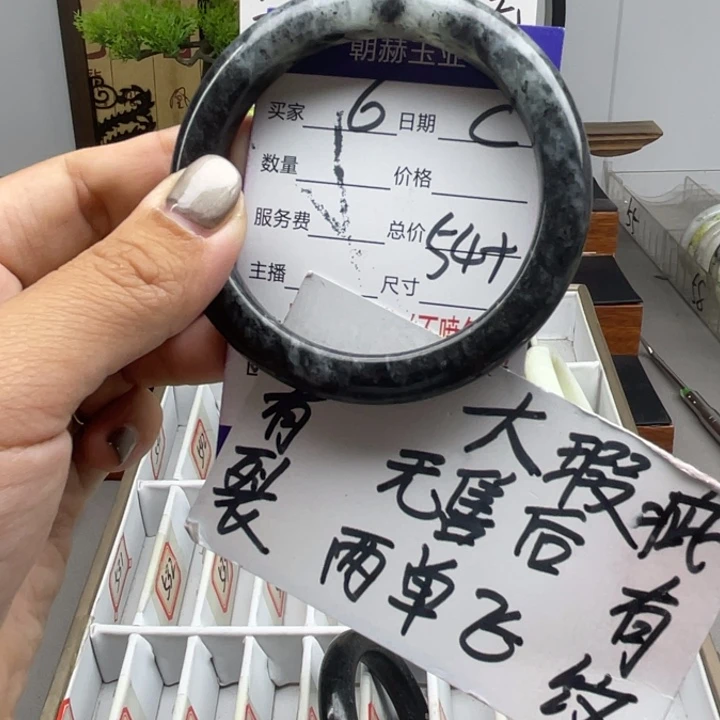 朝赫玉业
买家 6 日期 C
数量 价格
服务费 总价 54+
主播 尺寸
有裂
大瑕疵有纹
无售后
两单飞
55
58